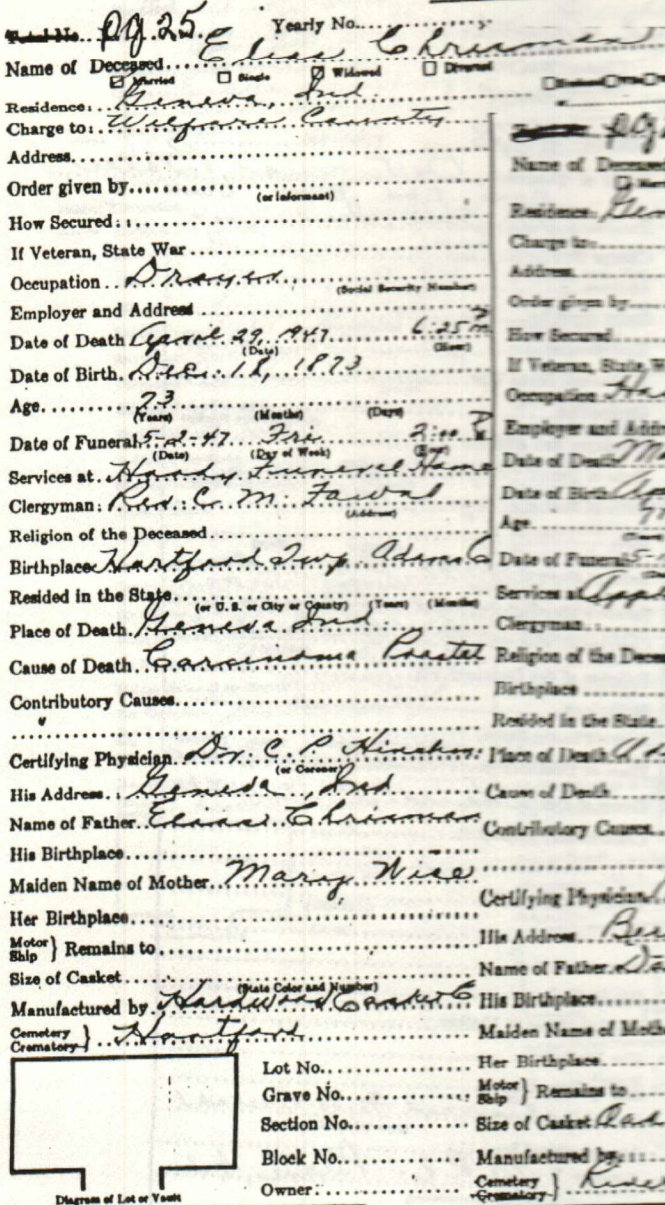 Total No. pg. 25. Yearly No.
Name of Deceased Elias Chrisman
Married Single Widowed Divorced
Residence: Geneva, Ind.
Charge to: Welfare County
Address
Order given by
(or informant)
How Secured:
If Veteran, State War
Occupation Drayer
(Social Security Number)
Employer and Address
Date of Death April 29, 1947 6:25 P
(Date) (Hour)
Date of Birth Dec. 18, 1873
Age 73
(Years) (Months) (Days)
Date of Funeral 5-2-47 Fri 2:00 P
(Date) (Day of Week)
Services at Funeral Home
Clergyman: Rev. C. M. Fawal
(Address)
Religion of the Deceased
Birthplace Hartford Twp. Adams C
Resided in the State
(or U. S. or City or County) (Years) (Months)
Place of Death Geneva Ind
Cause of Death Carcinoma
Contributory Causes
"
Certifying Physician Dr. C. P.
(or Coroner)
His Address Geneva, Ind
Name of Father Elias Chrisman
His Birthplace
Maiden Name of Mother Mary Wise
Her Birthplace
Motor
Ship } Remains to
Size of Casket
(State Color and Number)
Manufactured by Hardwood Casket C
Cemetery
Crematory } Hartford
Lot No.
Grave No.
Section No.
Block No.
Owner:
Diagram of Lot or Vault
pg
Name of Deceased
Residence Gen
Charge to:
Address
Order given by
How Secured
If Veteran, State, W
Occupation
Employer and Addr
Date of Death Ma
Date of Birth Ap
Age
Date of Funeral 5-
Services at Appl
Clergyman
Religion of the Decea
Birthplace
Resided in the State
Place of Death
Cause of Death
Contributory Causes
Certifying Physician
His Address Ber
Name of Father
His Birthplace
Maiden Name of Moth
Her Birthplace
Motor
Ship } Remains to
Size of Casket
Manufactured by
Cemetery
Crematory }